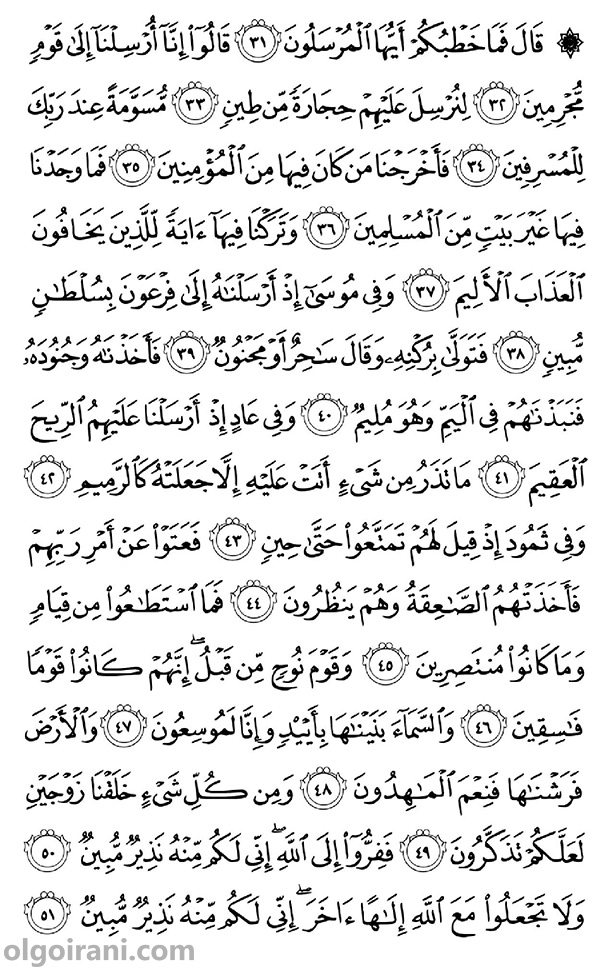 ۞ قَالَ فَمَا خَطْبُكُمْ أَيُّهَا ٱلْمُرْسَلُونَ ٣١ قَالُوٓا۟ إِنَّآ أُرْسِلْنَآ إِلَىٰ قَوْمٍ
مُّجْرِمِينَ ٣٢ لِنُرْسِلَ عَلَيْهِمْ حِجَارَةً مِّن طِينٍ ٣٣ مُّسَوَّمَةً عِندَ رَبِّكَ
لِلْمُسْرِفِينَ ٣٤ فَأَخْرَجْنَا مَن كَانَ فِيهَا مِنَ ٱلْمُؤْمِنِينَ ٣٥ فَمَا وَجَدْنَا
فِيهَا غَيْرَ بَيْتٍ مِّنَ ٱلْمُسْلِمِينَ ٣٦ وَتَرَكْنَا فِيهَآ ءَايَةً لِّلَّذِينَ يَخَافُونَ
ٱلْعَذَابَ ٱلْأَلِيمَ ٣٧ وَفِى مُوسَىٰٓ إِذْ أَرْسَلْنَٰهُ إِلَىٰ فِرْعَوْنَ بِسُلْطَٰنٍ
مُّبِينٍ ٣٨ فَتَوَلَّىٰ بِرُكْنِهِۦ وَقَالَ سَٰحِرٌ أَوْ مَجْنُونٌ ٣٩ فَأَخَذْنَٰهُ وَجُنُودَهُۥ
فَنَبَذْنَٰهُمْ فِى ٱلْيَمِّ وَهُوَ مُلِيمٌ ٤٠ وَفِى عَادٍ إِذْ أَرْسَلْنَا عَلَيْهِمُ ٱلرِّيحَ
ٱلْعَقِيمَ ٤١ مَا تَذَرُ مِن شَىْءٍ أَتَتْ عَلَيْهِ إِلَّا جَعَلَتْهُ كَٱلرَّمِيمِ ٤٢
وَفِى ثَمُودَ إِذْ قِيلَ لَهُمْ تَمَتَّعُوا۟ حَتَّىٰ حِينٍ ٤٣ فَعَتَوْا۟ عَنْ أَمْرِ رَبِّهِمْ
فَأَخَذَتْهُمُ ٱلصَّٰعِقَةُ وَهُمْ يَنظُرُونَ ٤٤ فَمَا ٱسْتَطَٰعُوا۟ مِن قِيَامٍ
وَمَا كَانُوا۟ مُنتَصِرِينَ ٤٥ وَقَوْمَ نُوحٍ مِّن قَبْلُ ۖ إِنَّهُمْ كَانُوا۟ قَوْمًا
فَٰسِقِينَ ٤٦ وَٱلسَّمَآءَ بَنَيْنَٰهَا بِأَيْي۟دٍ وَإِنَّا لَمُوسِعُونَ ٤٧ وَٱلْأَرْضَ
فَرَشْنَٰهَا فَنِعْمَ ٱلْمَٰهِدُونَ ٤٨ وَمِن كُلِّ شَىْءٍ خَلَقْنَا زَوْجَيْنِ
لَعَلَّكُمْ تَذَكَّرُونَ ٤٩ فَفِرُّوٓا۟ إِلَى ٱللَّهِ ۖ إِنِّى لَكُم مِّنْهُ نَذِيرٌ مُّبِينٌ ٥٠
وَلَا تَجْعَلُوا۟ مَعَ ٱللَّهِ إِلَٰهًا ءَاخَرَ ۖ إِنِّى لَكُم مِّنْهُ نَذِيرٌ مُّبِينٌ ٥١
olgoirani.com